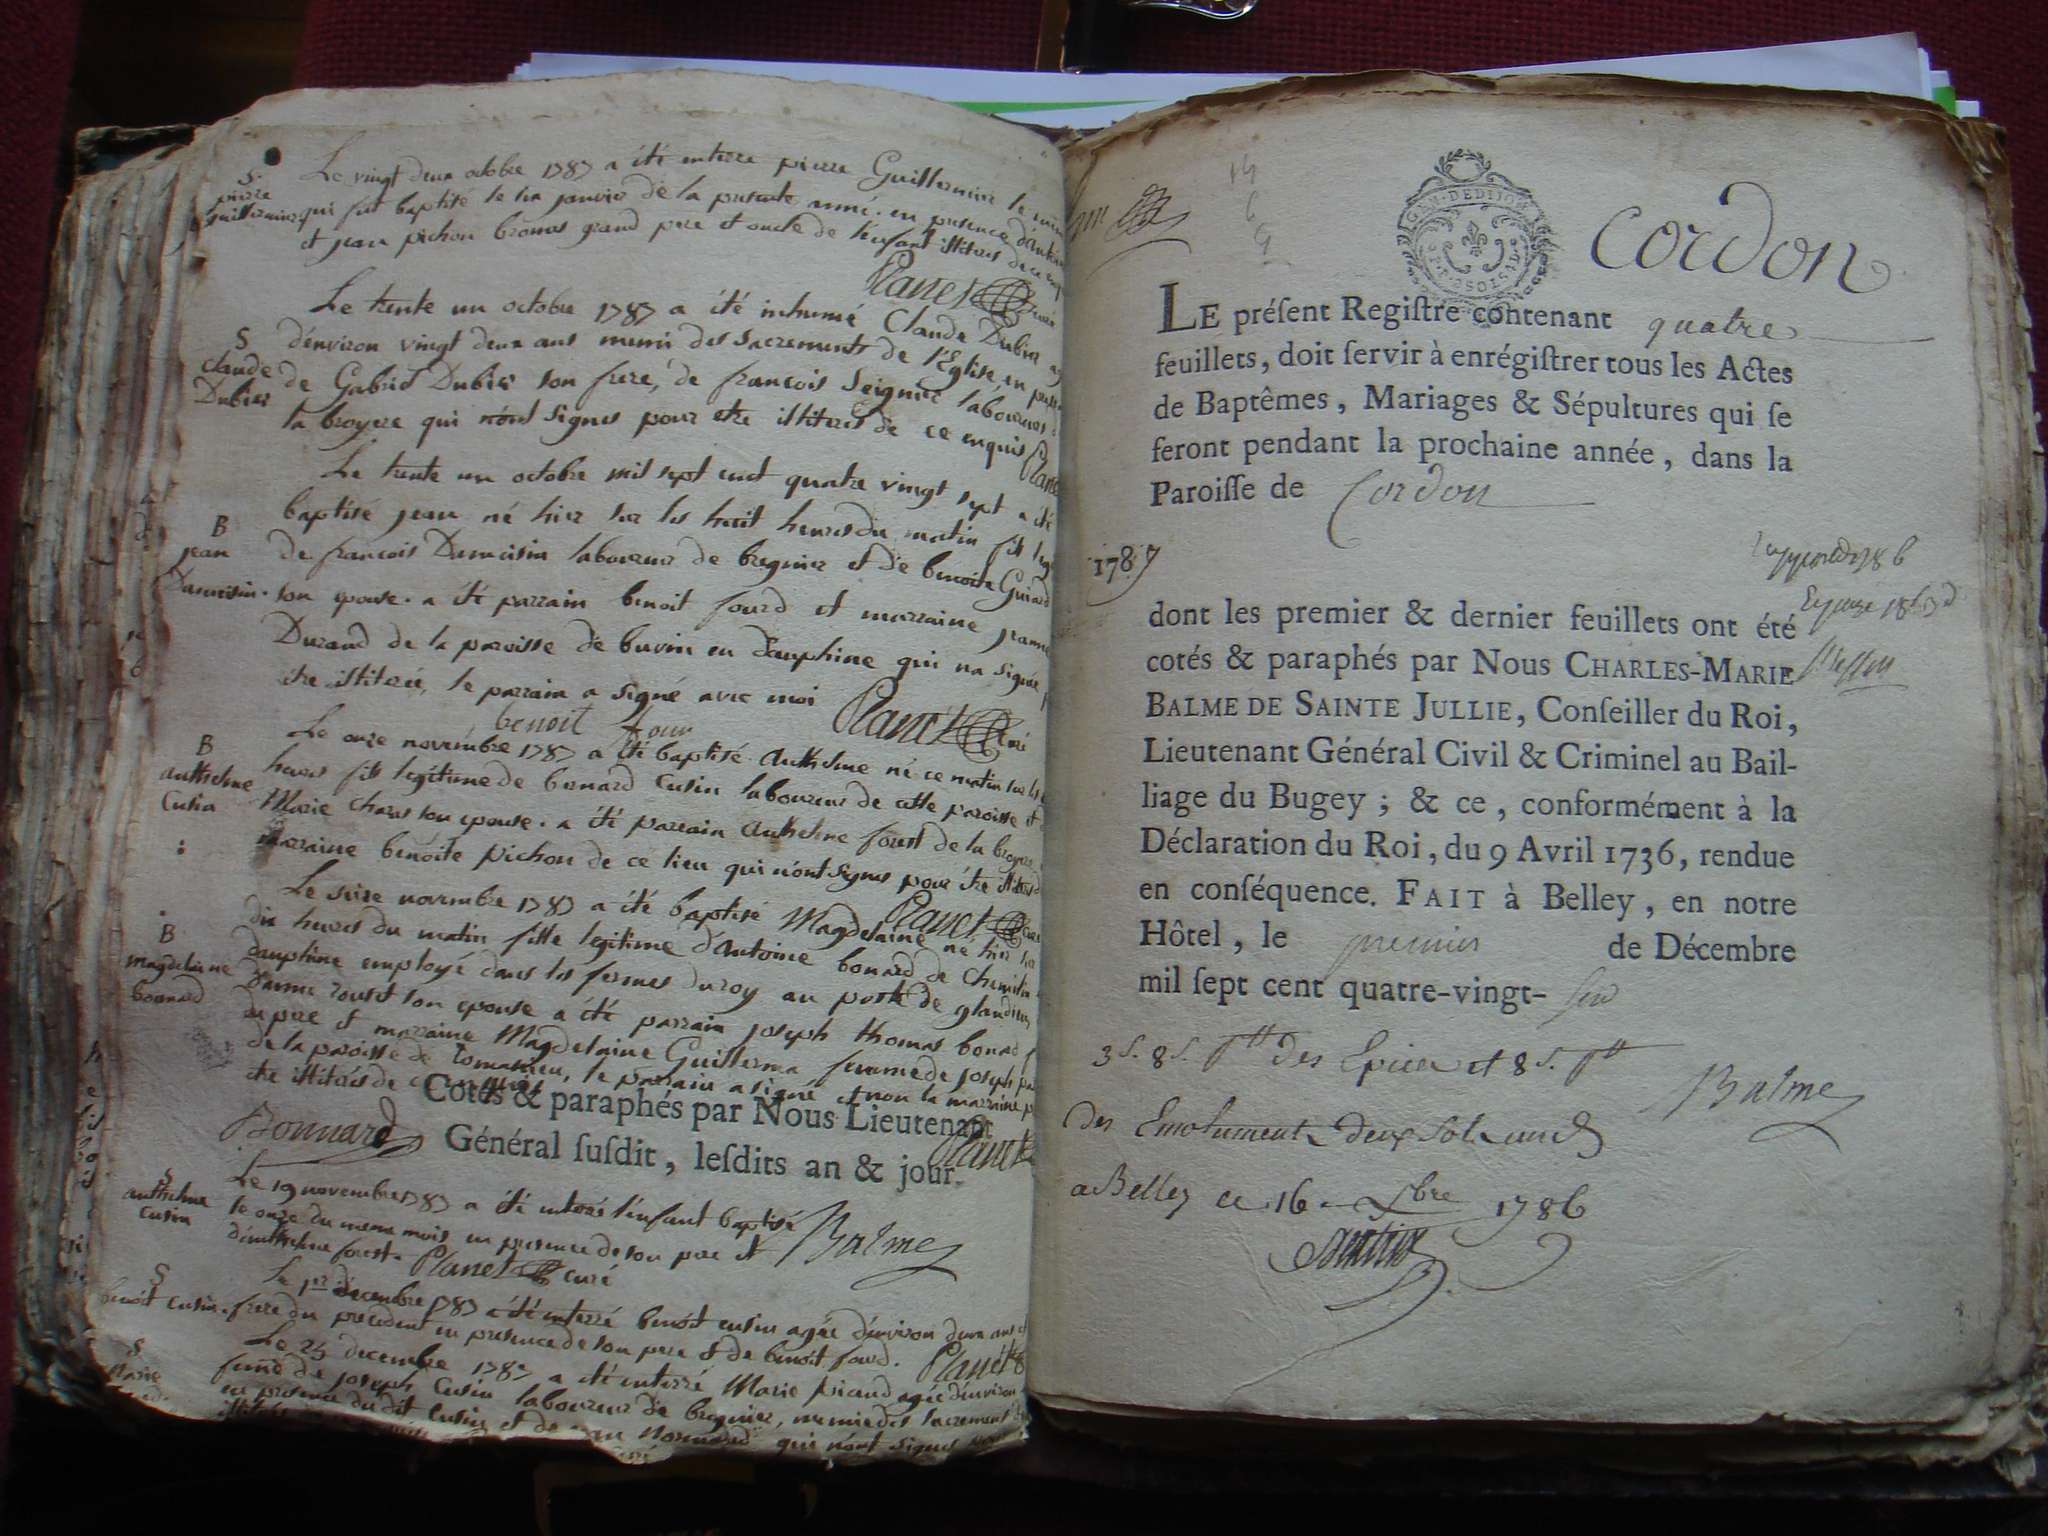 Le vingt deux octobre 1787 a été enterré pierre Guillermier le
S.
pierre
Guillermier
qui fut baptisé le six janvier de la presente année. en presence d'
et jean pichon bronos grand pere et oncle de l'enfant illiterés de ce
Planet
Le trente un octobre 1787 a été inhumé Claude Dubier
S
Claude
Dubier
d'environ vingt deux ans muni des Sacrements de l'Eglise, en
de Gabriel Dubier son frere, de françois Seignier laboureurs
la broyere qui n'ont signes pour etre illiterés de ce enquis
Planet
Le trente un octobre mil sept cent quatre vingt sept a été
B
jean
Damaisin.
baptisé jean né hier sur les huit heures du matin fils
de francois Damaisin laboureur de bregnier et de benoite Guiard
son epouse. a été parrain benoit fourd et marraine jeanne
Durand de la paroisse de buvin en dauphine qui na signée
etre illiterée, le parrain a signé avec moi
Planet
benoit four
Le onze novembre 1787 a été baptisé Anthelme né ce matin sur les
B
anthelme
Cusin
heures fils legitime de benard Cusin laboureur de cette paroisse et
Marie Charos son epouse. a été parrain Anthelme forest de la broyere
marraine benoite pichon de ce lieu qui n'ont signes pour être illiterés
Planet
Le seize novembre 1787 a été baptisé Magdelaine né hier sur
B
magdelaine
bonnard
dix heures du matin fille legitime d'Antoine bonard de Chimilin
dauphine employé dans les fermes du roy au poste de glandieu
d'anne rouset son epouse a été parrain joseph thomas bonard
du pere et marraine Magdelaine Guillerma femme de joseph
de la paroisse de romanieu, le parrain a signé et non la marraine
etre illiterés de ce enquis
Cotés & paraphés par Nous Lieutenant
Bonnard
Général susdit, lesdits an & jour.
Planet
S
anthelme
cusin
Le 19 novembre 1787 a été enterré l'enfant baptisé
le onze du meme mois en presence de son pere et
d'anthelme forest. Planet curé
Balme
S
benoit cusin.
Le 1er decembre 1787 a été enterré benoit cusin agée d'environ deux ans et
frere du precedent en presence de son pere et de benoit fourd. Planet
S
Marie
Le 25 decembre 1787 a été enterré Marie picand agée d'environ
femme de joseph Cusin laboureur de bregnier, munie des sacrements
en presence du dit Cusin et de qui n'ont signes
14
6
9
Cordon
LE présent Registre contenant quatre
feuillets, doit servir à enrégistrer tous les Actes
de Baptêmes, Mariages & Sépultures qui se
feront pendant la prochaine année, dans la
Paroisse de Cordon
1787
dont les premier & dernier feuillets ont été
cotés & paraphés par Nous CHARLES-MARIE
BALME DE SAINTE JULLIE, Conseiller du Roi,
Lieutenant Général Civil & Criminel au Bail-
liage du Bugey ; & ce, conformément à la
Déclaration du Roi, du 9 Avril 1736, rendue
en conséquence. FAIT à Belley, en notre
Hôtel, le premier de Décembre
mil sept cent quatre-vingt- six
3 s. 8 s. pr des Epices et 8 s. pr
Balme
des Emoluments deux sols
a Belley ce 16 Xbre 1786